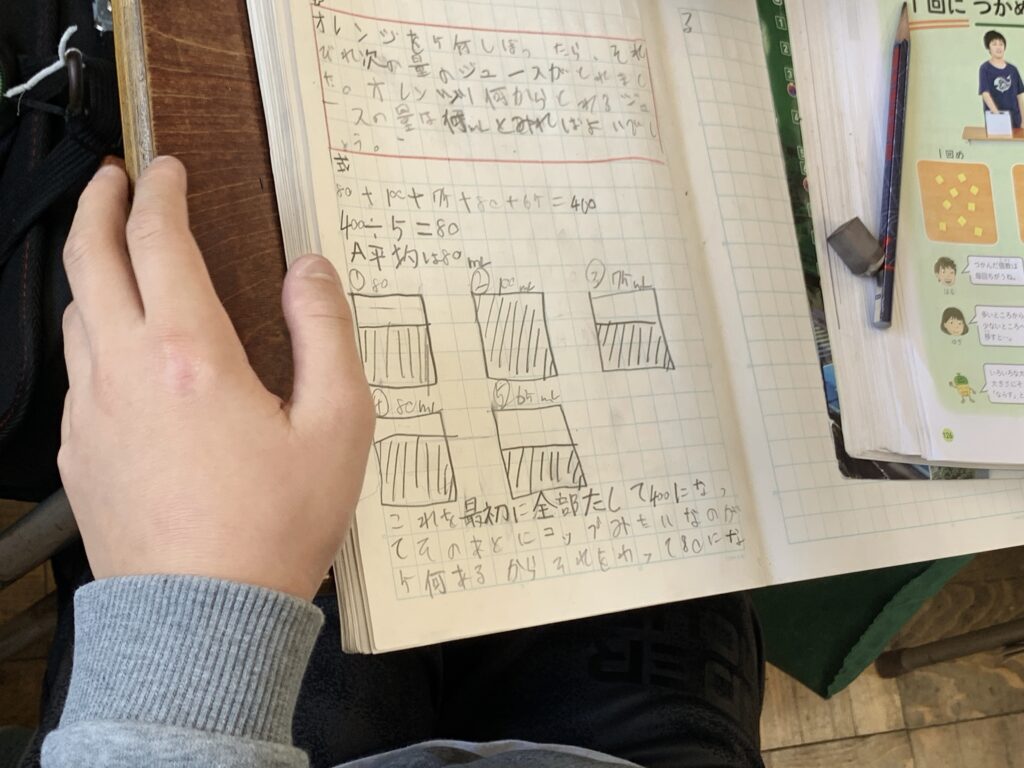 オレンジを5個しぼったら、それ
ぞれ次の量のジュースがとれまし
た。オレンジ1個からとれるジュ
ースの量は何mLとみればよいでし
ょう。
式
80+100+75+80+65=400
400÷5=80
A平均は80mL
①80
②100mL
③75mL
④80mL
⑤65mL
これを最初に全部たして400になっ
てそのあとにコップみたいなのが
5個あるからそれをわって80にな
1回につかめ
1回め
つかんだ個数は
毎回ちがうね。
はる
多いところから
少ないところへ
移すと…。
ゆき
いろいろな大
大きさにそ
「ならす」と
126